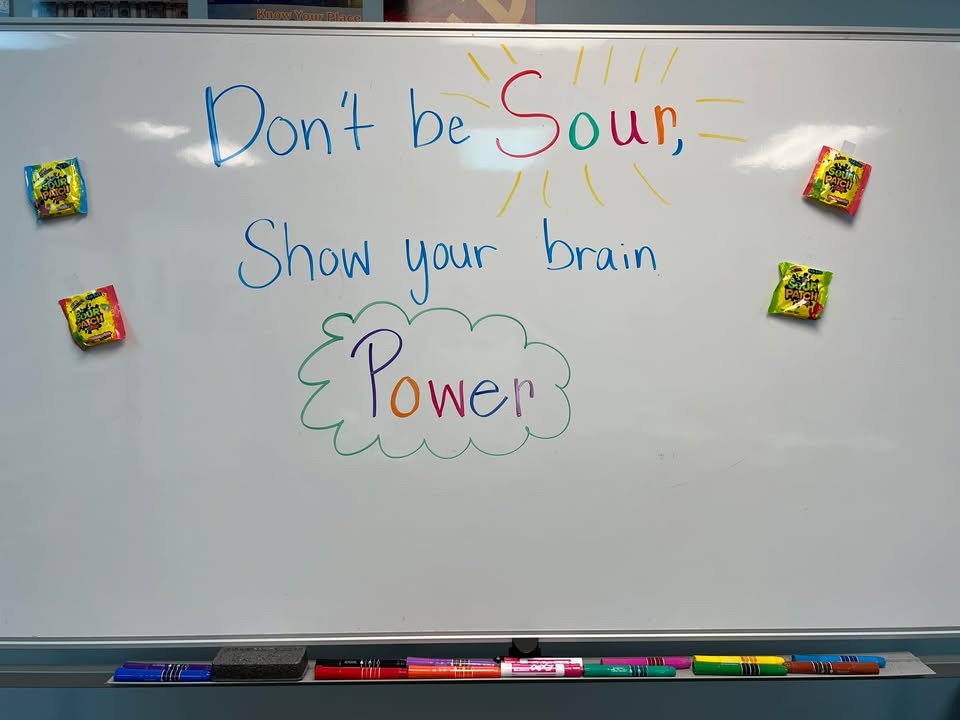 Know Your Place
Don't be Sour,
SOUR PATCH
SOUR PATCH
Show your brain
SOUR PATCH
SOUR PATCH
Power
EXPO